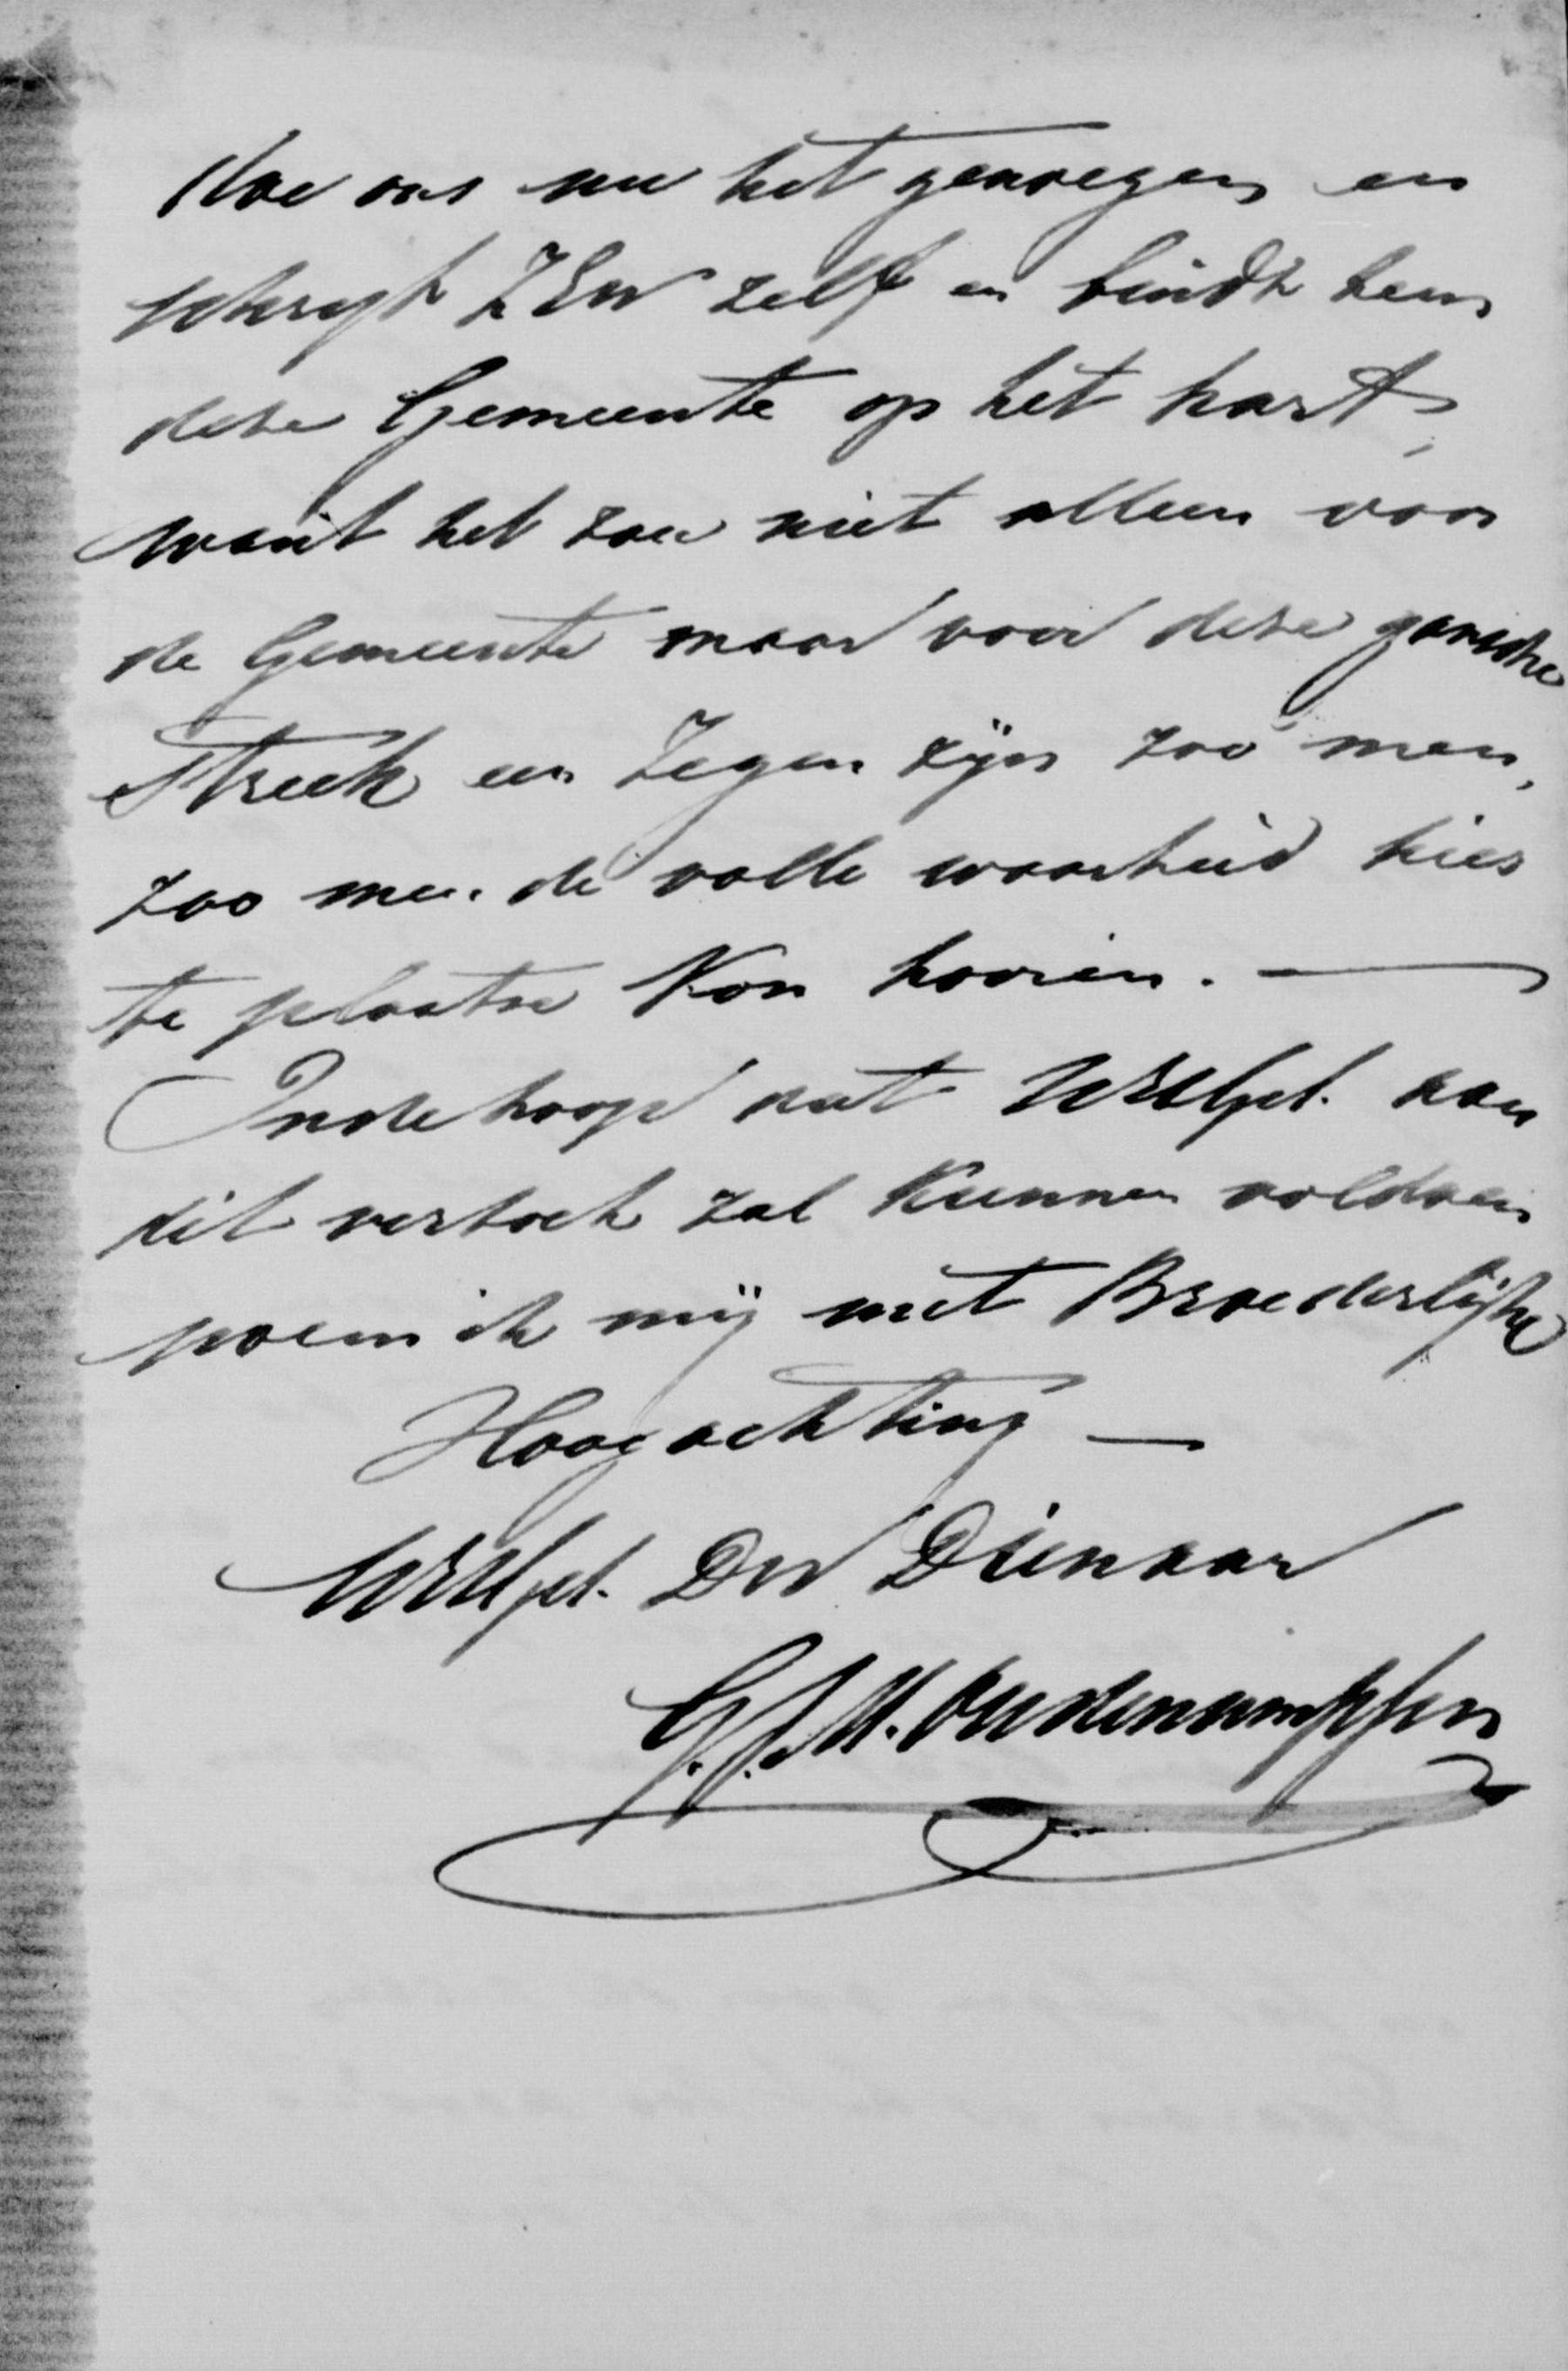 doe ons nu het genoegen en
schrijft ZEw zelf en bindt hem
deze Gemeente op het hart,
want het zou niet alleen voor
de Gemeente maar voor deze gansche
Streek een Zegen zijn zoo men,
zoo men de volle waarheid hier
te plaatse Kon hooren. —
In de hoop dat UWelgel. aan
dit verzoek zal Kunnen voldoen
noem ik mij met Broederlijke
Hoogachting —
UWelgel. Dw Dienaar
G.J.M. Oudenampsen